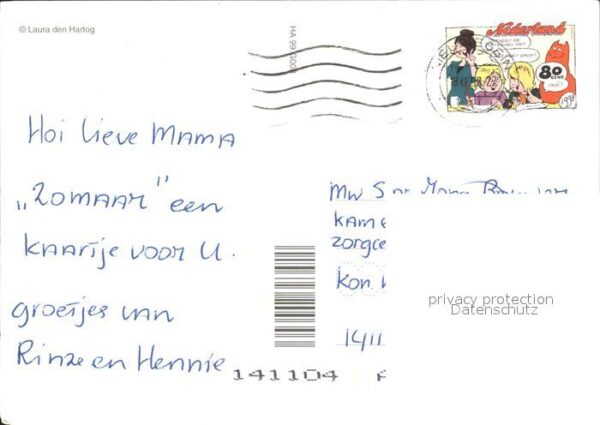 © Laura den Hartog
HA 99 5008
Nederland
80
CENT
1998
Hoi lieve Mama
„Zomaar" een
kaartje voor U.
groetjes van
Rinze en Hennie
Mw
kam
zorgce
Kon
1411
privacy protection
Datenschutz
141104